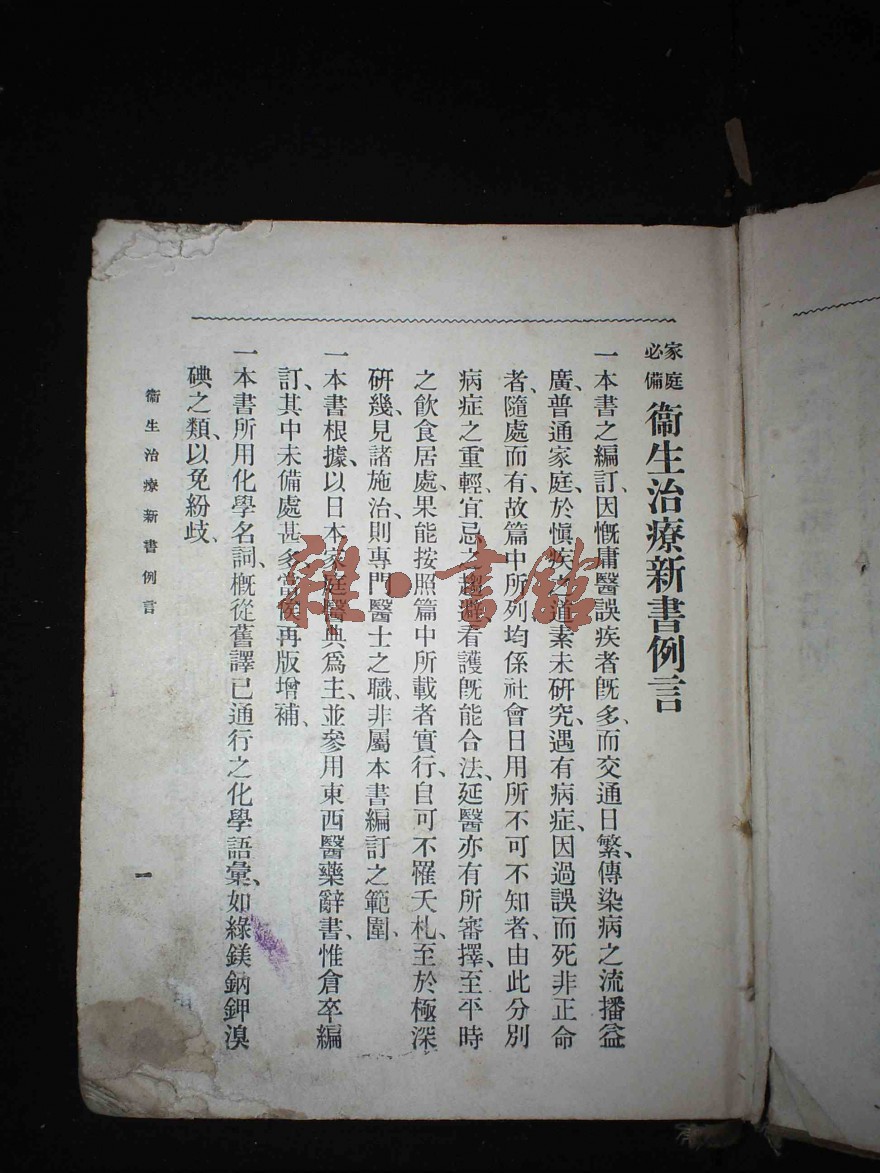 家庭
必備
衞生治療新書例言
一本書之編訂、因慨庸醫誤疾者旣多、而交通日繁、傳染病之流播益
廣、普通家庭、於愼疾之道、素未研究、遇有病症、因過誤而死非正命
者、隨處而有、故篇中所列、均係社會日用所不可不知者、由此分別
病症之重輕、宜忌之趨避、看護旣能合法、延醫亦有所審擇、至平時
之飲食居處、果能按照篇中所載者實行、自可不罹夭札、至於極深
研幾、見諸施治、則專門醫士之職、非屬本書編訂之範圍、
一本書根據、以日本家庭醫典爲主、並參用東西醫藥辭書、惟倉卒編
訂、其中未備處甚多、當俟再版增補、
一本書所用化學名詞、槪從舊譯已通行之化學語彙、如綠鎂鈉鉀溴
碘之類、以免紛歧、
衞生治療新書例言
一
雜·書館